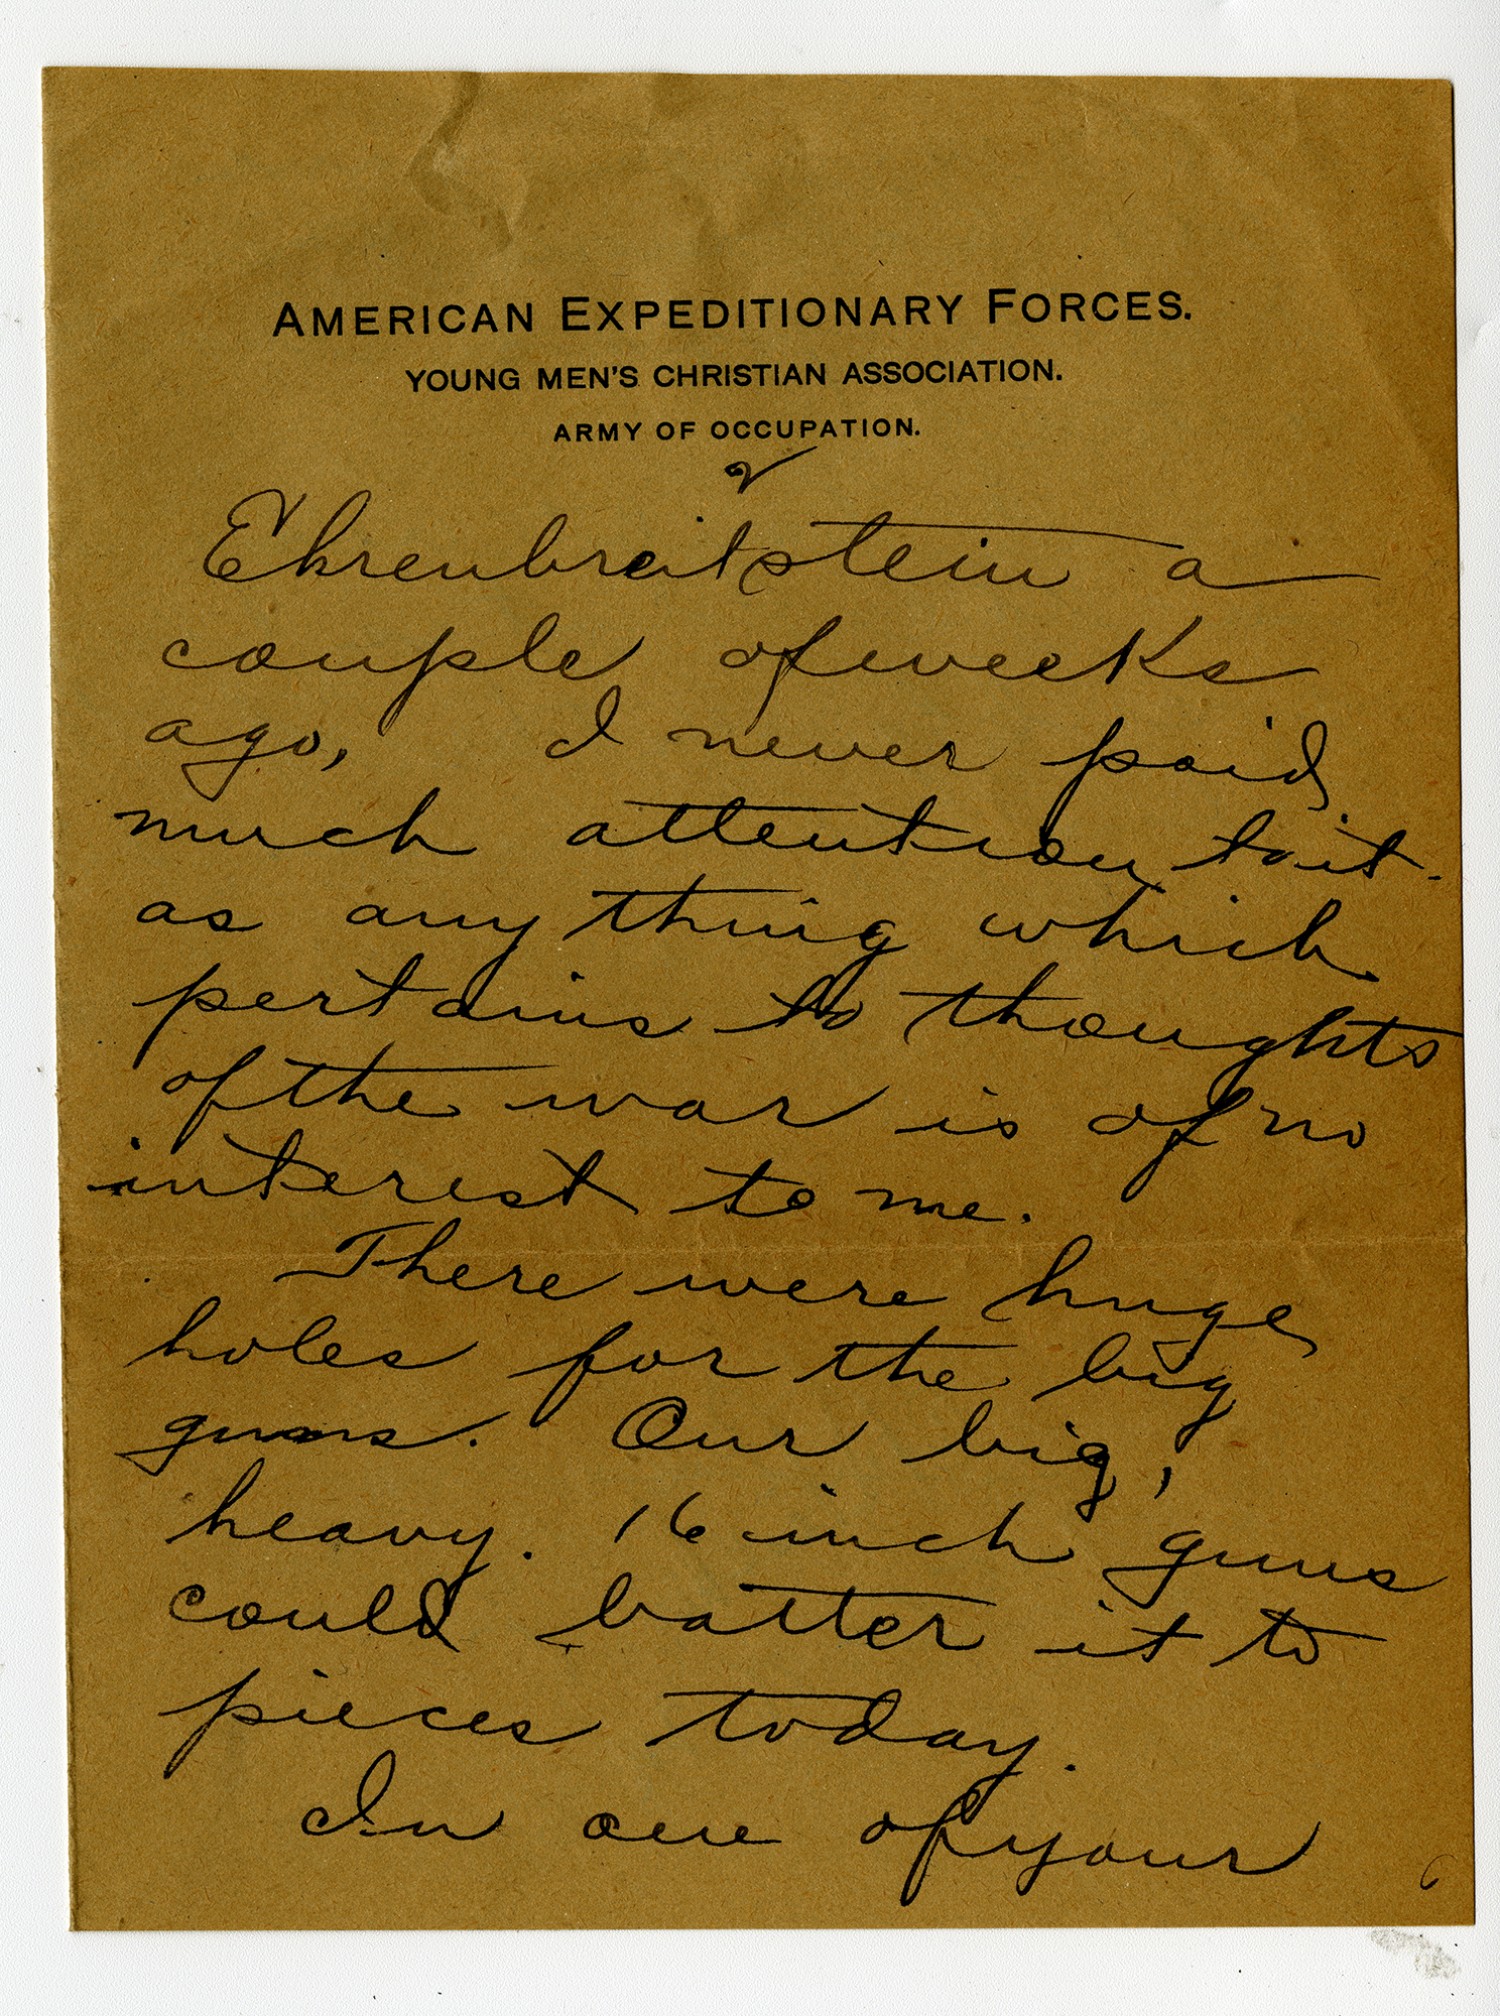 AMERICAN EXPEDITIONARY FORCES.
YOUNG MEN'S CHRISTIAN ASSOCIATION.
ARMY OF OCCUPATION.
Ehrenbreitstein a
couple of weeks
ago, I never paid
much attention to it.
as any thing which
pertains to thoughts
of the war is of no
interest to me.
There were huge
holes for the big
guns. Our big,
heavy. 16 inch guns
could batter it to
pieces today.
In one of your
6